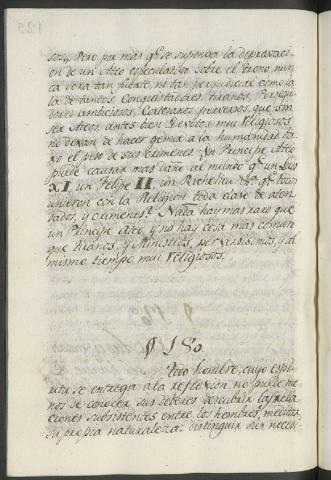 sos. Pero por mas qe. se suponga la depravaci-
on de un Ateo especulativo sobre el Trono, nun-
ca será tan fuerte, ni tan perjudicial como la
la de tantos Conquistadores, tiranos, Persegui-
dores ambiciosos, Cortesanos perversos, que sin
ser Ateos, antes bien Devotos mui Religiosos
no dexan de hacer gemir a la humanidad ba-
xo el peso de sus crimenes. Un Principe Ateo
puede causar mas daño al mundo qe. un Luis
XI, un Felipe II, un Richelieu &. qe. todos
unieron con la Religion toda clase de aten-
tados, y crimenes? Nada hay mas raro que
un Principe ateo y no hay cosa mas comun
que tiranos, y Ministros, perversisimos, y al
mismo tiempo mui religiosos.
§ 180.
Todo hombre, cuyo espi-
ritu se entrega a la reflexion, no puede me-
nos de conocer sus deberes descubrir las rela-
ciones subsistentes entre los hombres, meditar
su propia naturaleza: distinguir sus necesi-